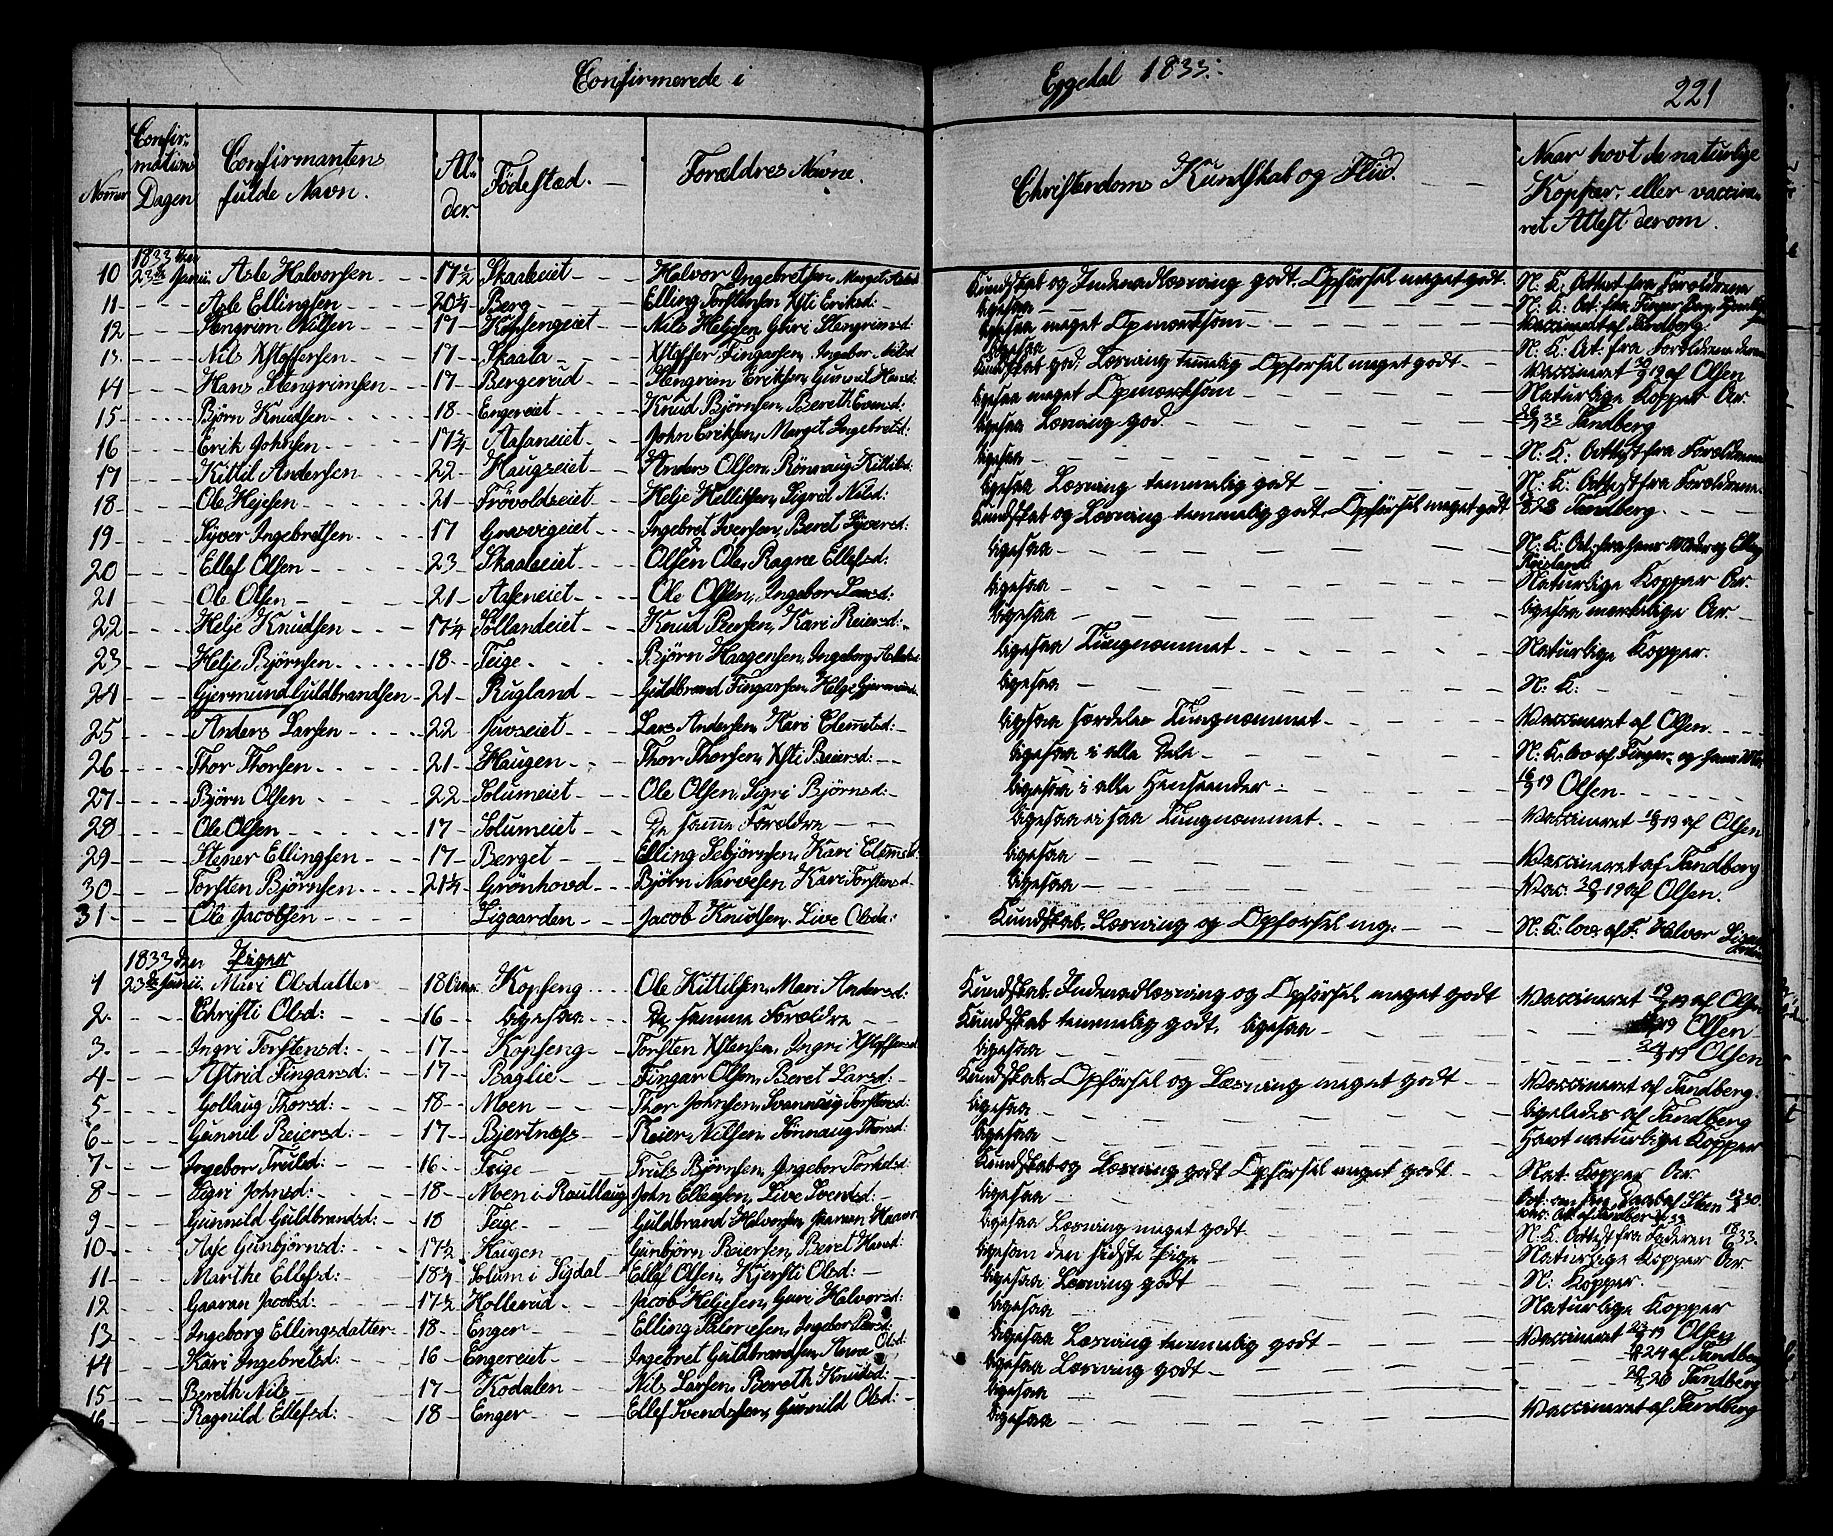 Confirmerede i Eggedal 1833. 221
Nomer Confirmations Dagen Confirmantens fulde Navn. Alder. Födested. Forældres Navne. Christendoms Kundskab og Flid. Naar havt de naturlige Kopper, eller vaccineret Attest derom.
1833 den
10 23de Junii Asle Halvorsen 17½ Skaaleiet Halvor Ingebretsen, Marget Kundskab og Indenadlæsning godt. Opförsel meget godt. N: K. Attest fra Forældrene
11 Asle Ellingsen 20¼ Berg Elling Torstensen Xsti Eriksd: ligesaa N: K: At: fra
12 Stengrim Nilsen 17 Kopsengeiet Nils Heljesen, Guri Stengrimsd: ligesaa meget Opmerksom Vaccineret af Tandberg
13 Nils Xstoffersen 17 Skaala Xstoffer Fingarsen, Ingebor Nilsd ligesaa N: K: At: fra Forældrene
14 Hans Stengrimsen 17 Bergerud Stengrim Eriksen, Gunnil Hansd: Kundskab god. Læsning temmelig Opförsel meget godt Vaccineret 19 af Olsen
15 Björn Knudsen 18 Engereiet Knud Björnsen, Bereth Evensd: ligesaa meget Opmerksom Naturlige Kopper Ar
16 Erik Johnsen 17¾ Aasaneiet John Eriksen, Margit Ingebretsd: ligesaa Læsning god 33 Tandberg
17 Kittil Andersen 22 Haugseiet Anders Olsen, Rönnaug Kittilsd: ligesaa N: K: Attest fra Forældrene
18 Ole Hejesen 21 Frövoldseiet Helje Helliksen, Sigrid Nilsd: ligesaa Læsning temmelig godt N: K. Attest fra Forældrene
19 Syver Ingebretsen 17 Grasvigeiet Ingebret Iversen, Beret Syversd: Kundskab og Læsning temmelig godt, Opförsel meget godt 828 Tandberg
20 Ellef Olsen 23 Skaaleeiet Olsen Ole, Ragne Ellefsd: ligesaa N: K: At: fra hans Moder og
21 Ole Olsen 21 Aaseneiet Ole Olsen, Ingebor Larsd: ligesaa Naturlige Kopper Ar
22 Helje Knudsen 17¼ Söllandeiet Knud Peersen, Kari Reiersd: ligesaa ligesaa mærkelige Ar
23 Helje Björnsen 18 Teige Björn Haagensen, Ingeborg ligesaa Tungnæmmet Naturlige Kopper.
24 Gjermund Guldbrandsen 21 Rugland Guldbrand Fingarsen, Helge ligesaa N: K:
25 Anders Larsen 22 Lars Andersen, Kari Clemetsd: ligesaa særdeles Tungnæmmet Vaccineret af Olsen
26 Thor Thorsen 21 Haugen Thor Thorsen, Xsti Reiersd: ligesaa i alle Dele N: K.
27 Björn Olsen 22 Solumeiet Ole Olsen, Sigri Björnsd: ligesaa i alle Henseender 19 Olsen
28 Ole Olsen 17 Solumeiet De samme Forældre ligesaa ei saa Tungnæmmet. Vaccineret 19 af Olsen
29 Stener Ellingsen 17 Berget Elling Sebjörnsen, Kari ligesaa Vaccineret af Tandberg
30 Torsten Björnsen 21¼ Grönhovd Björn Narvesen Kari Torstensd ligesaa Vac. 19 af Olsen.
31 Ole Jacobsen Ligaarden Jacob Knudsen, Live Olsda: Kundskab. Læsning og Opförsel mg: N: K: af F. Halvor
1833 den Piger
1 23de Junii Mari Olsdatter 18 Kopseng Ole Kittilsen, Mari Andersd: Kundskab. Indenadlæsning og Opförsel meget godt Vaccineret 19 af Olsen
2 Christi Olsd: 16 ligesaa De samme Forældre Kundskab temmelig godt, ligesaa 19 Olsen
3 Ingri Torstensd: 17 Kopseng Torsten Xstensen, Ingri Xstoffersd ligesaa 19 Olsen
4 Astrid Fingarsd: 17 Baglie Fingar Olsen, Beret Larsd: Kundskab. Opförsel og Læsning meget godt Vaccineret af Tandberg.
5 Gollaug Thorsd: 18 Moen Thor Johnsen, Svannaug Torstensd: ligesaa ligeledes af Tandberg
6 Gunnil Reiersd: 17 Bjertnæss Reier Nilsen, Tönnaug Thorsd: ligesaa Havt naturlige Kopper
7 Ingebor Trulsd: 16 Teige Truls Björnsen, Ingebor Torkelsd: Kundskab og Læsning godt Opförsel meget godt Nat. Kopper Ar.
8 Sigri Johnsd: 18 Moen i Roullaug John Ellensen, Live Svendsd: ligesaa
9 Gunnild Guldbrandsd: 18 Teige Guldbrand Halvorsen, ligesaa Læsning meget godt N: K: Attest fra Faderen 33.
10 Aase Gunbjörnsd: 17½ Haugen Gunbjörn Reiersen, Beret Hansd: ligesom den sidste Pige Naturlige Kopper Ar
11 Marthe Ellefsd: 18¼ Solum i Sigdal Ellef Olsen, Kjersti Olsd: ligesaa Læsning godt N: Kopper.
12 Gaaran Jacobsd: 17½ Hollerud Jacob Heljesen, Guri Halvorsd: ligesaa Naturlige Kopper
13 Ingeborg Ellingsdatter 18 Enger Elling Ingebor Larsd: ligesaa Læsning temmelig godt Vaccineret 19 Olsen
14 Kari Ingebretsd: 16 Engereiet Ingebret Guldbrandsen, Anne Olsd: ligesaa Læsning godt 24 af Tandberg
15 Bereth Nils 17 Kodalen Nils Larsen, Bereth Knudsd: ligesaa 20 Tandberg
16 Ragnild Ellefsd: 18 Enger Ellef Svendsen, Gunnild Olsd: ligesaa Vaccineret af Tandberg